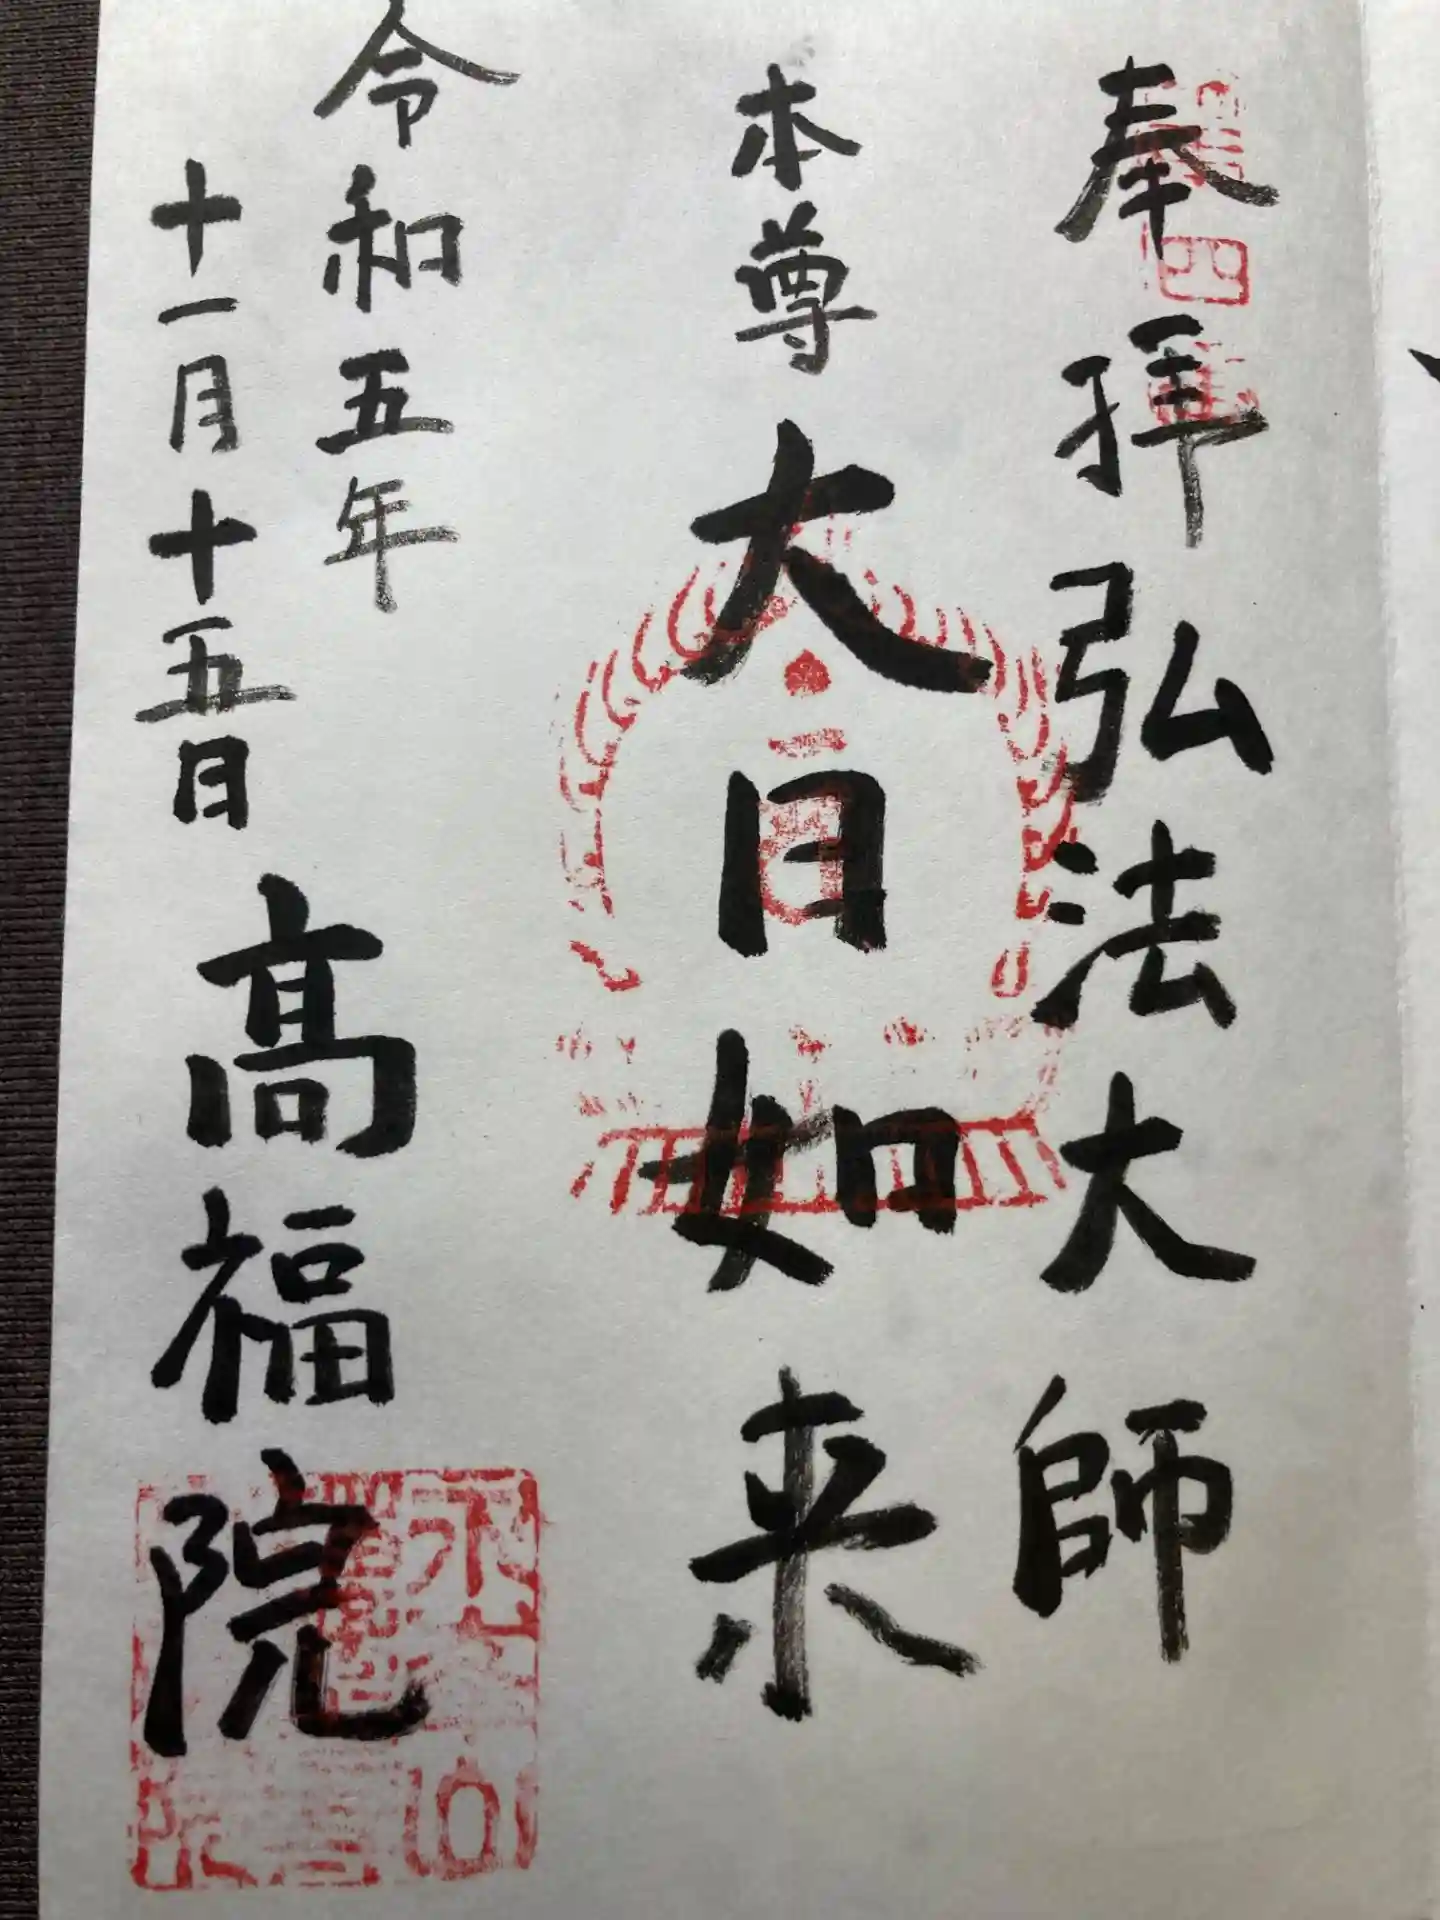 奉拝弘法大師
本尊大日如来
令和五年
十一月十五日
高福院